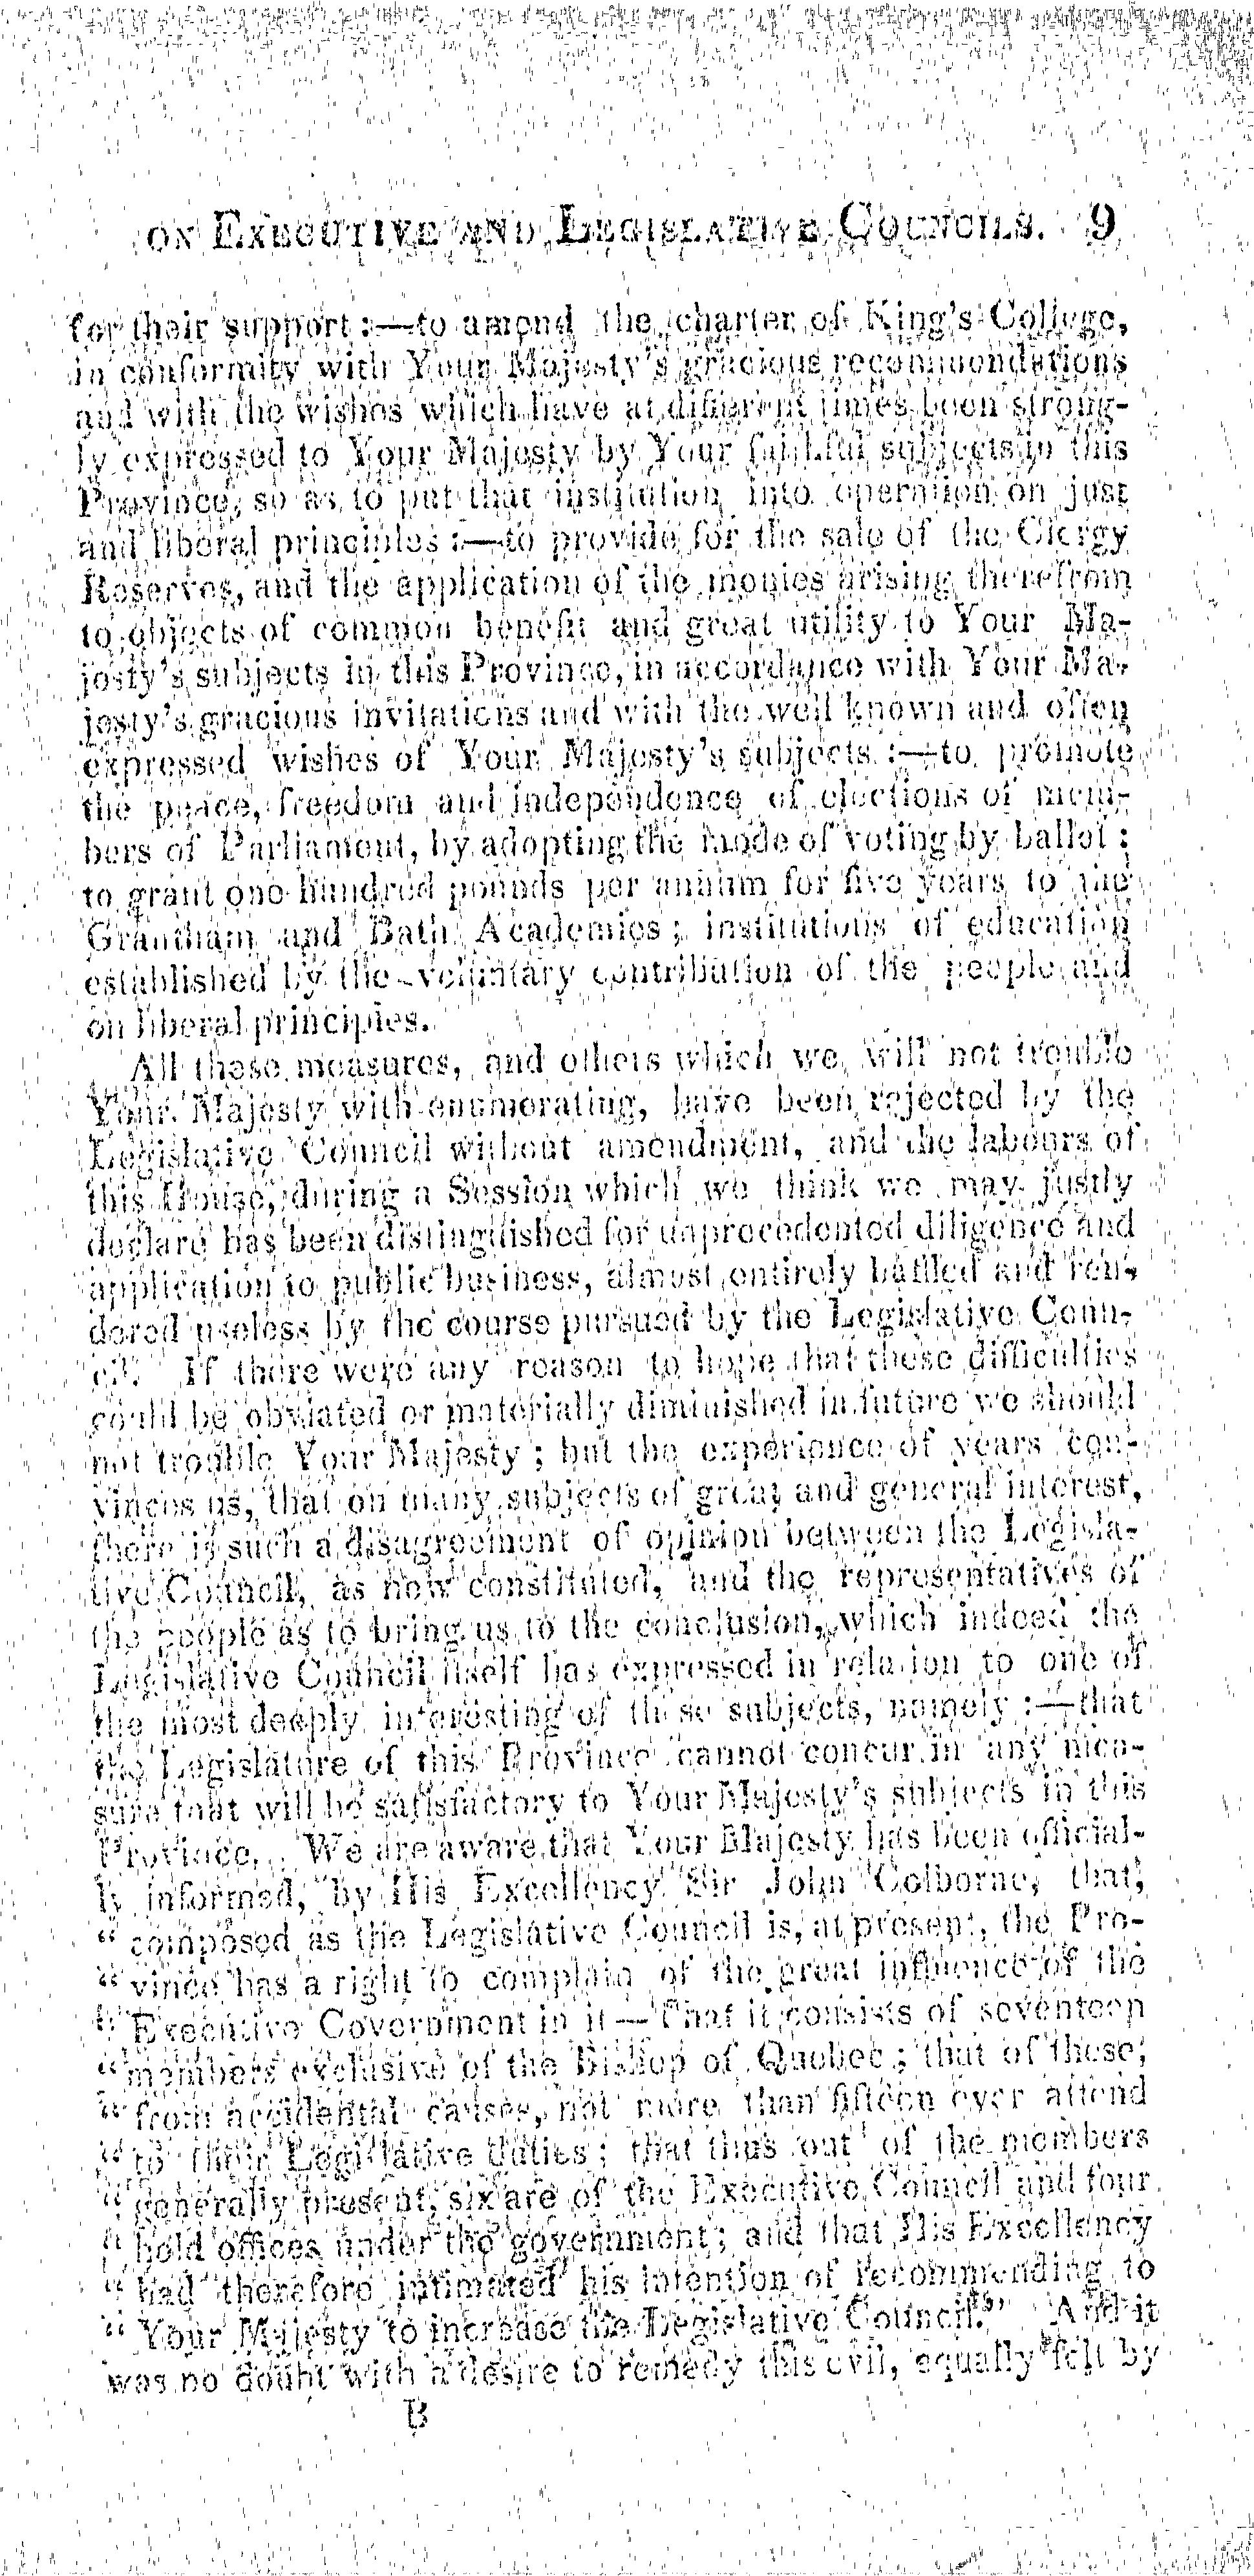 ON EXECUTIVE AND LEGISLATIVE COUNCILS. 9
for their support :—to amend the charter of King's College,
in conformity with Your Majesty's gracious recommendations
and with the wishes which have at different times been strong-
ly expressed to Your Majesty by Your faithful subjects in this
Province, so as to put that institution into operation on just
and liberal principles :—to provide for the sale of the Clergy
Reserves, and the application of the monies arising therefrom
to objects of common benefit and great utility to Your Ma-
jesty's subjects in this Province, in accordance with Your Ma-
jesty's gracious invitations and with the well known and often
expressed wishes of Your Majesty's subjects :—to promote
the peace, freedom and independence of elections of mem-
bers of Parliament, by adopting the mode of voting by ballot :
to grant one hundred pounds per annum for five years to the
Grantham and Bath Academies ; institutions of education
established by the voluntary contribution of the people and
on liberal principles.
All these measures, and others which we will not trouble
Your Majesty with enumerating, have been rejected by the
Legislative Council without amendment, and the labours of
this House, during a Session which we think we may justly
declare has been distinguished for unprecedented diligence and
application to public business, almost entirely baffled and ren-
dered useless by the course pursued by the Legislative Coun-
cil. If there were any reason to hope that these difficulties
could be obviated or materially diminished in future we should
not trouble Your Majesty ; but the experience of years con-
vinces us, that on many subjects of great and general interest,
there is such a disagreement of opinion between the Legisla-
tive Council, as now constituted, and the representatives of
the people as to bring us to the conclusion, which indeed the
Legislative Council itself has expressed in relation to one of
the most deeply interesting of these subjects, namely :—that
the Legislature of this Province cannot concur in any mea-
sure that will be satisfactory to Your Majesty's subjects in this
Province. We are aware that Your Majesty has been official-
ly informed, by His Excellency Sir John Colborne, that,
" composed as the Legislative Council is, at present, the Pro-
" vince has a right to complain of the great influence of the
" Executive Government in it—That it consists of seventeen
" members exclusive of the Bishop of Quebec ; that of these,
" from accidental causes, not more than fifteen ever attend
" to their Legislative duties ; that thus out of the members
" generally present, six are of the Executive Council and four
" hold offices under the government ; and that His Excellency
" had therefore intimated his intention of recommending to
" Your Majesty to increase the Legislative Council." And it
was no doubt with a desire to remedy this evil, equally felt by
B